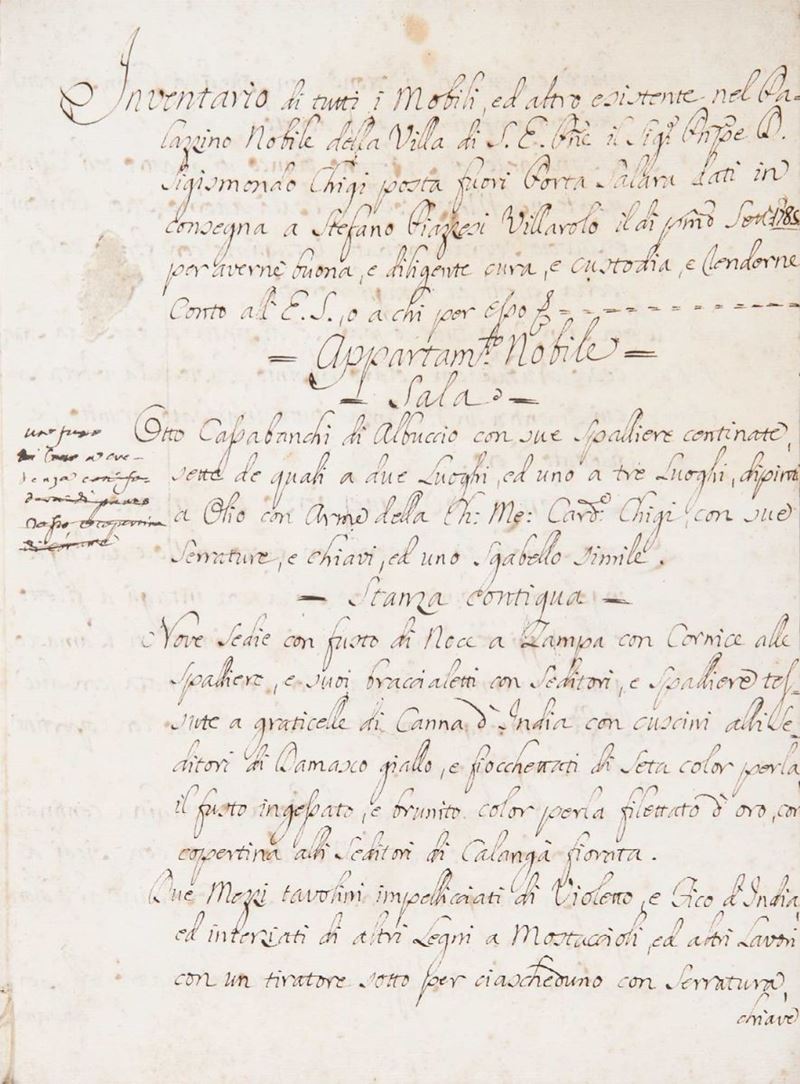 Inventario di tutti i Mobili, ed altro esistente nel Pa=
lazzino Nobile della Villa di S. E. Pñe il Sig.r Pñpe D.
Sigismondo Chigi posta fuori Porta Salara dati in
consegna a Stefano Piazzesi Villarolo il di pm̃o Sett. 1785
per averne buona, e diligente cura, e custodia, e renderne
Conto all' E. S., o a chi per esso
= Appartam.to Nobile =
= Sala =
Otto Cassabanchi di Albuccio con sue spalliere centinate,
sette de quali a due Luoghi, ed uno a tre Luoghi, dipinti
a Olio con Arme della Ch: Me: Card.e Chigi, con sue
Serrature, e chiavi, ed uno Sgabello simile.
= Stanza contigua =
Nove Sedie con fusto di Noce a Zampa con Cornice alle
spalliere, e suoi braccialetti con Seditori, e spalliere tes=
sute a graticelle di Canna d'India con cuscini alli Se=
ditori di Damasco giallo, e fiocchettati di Seta color perla
il fusto ingessato, e brunito color perla filettato d'oro, con
copertina alli Seditori di Calangà fiorata.
Due Mezzi tavolini impelliciati di Violetto, e Fico d'India,
ed interziati di altri Legni a Mostaccioli, ed altri Lavori
con un tiratore sotto per ciascheduno con Serratura,
chiave